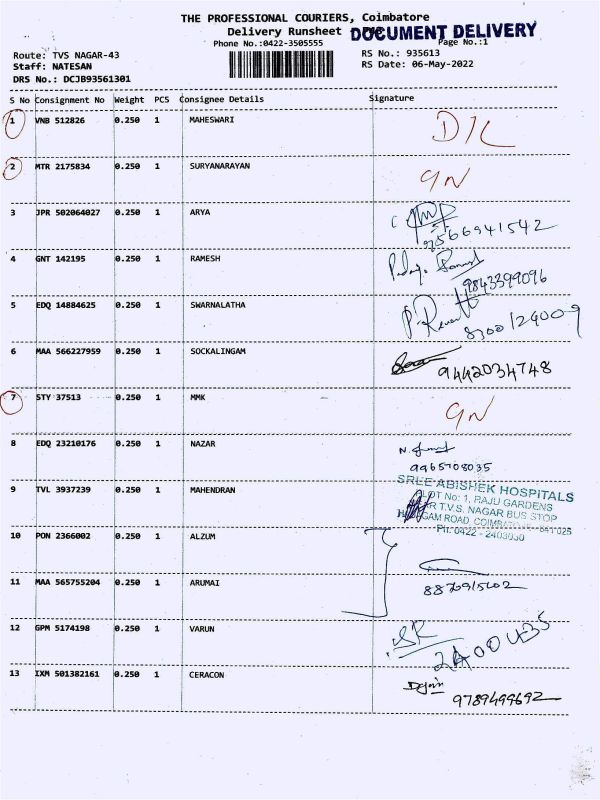 THE PROFESSIONAL COURIERS, Coimbatore
Delivery Runsheet
DOCUMENT DELIVERY
Phone No.:0422-3505555
Page No.:1
Route: TVS NAGAR-43
RS No.: 935613
Staff: NATESAN
RS Date: 06-May-2022
DRS No.: DCJB93561301
S No Consignment No Weight PCS Consignee Details Signature
1 VNB 512826 0.250 1 MAHESWARI D/L
2 MTR 2175834 0.250 1 SURYANARAYAN
3 JPR 502064027 0.250 1 ARYA
9566941542
4 GNT 142195 0.250 1 RAMESH
9843399096
5 EDQ 14884625 0.250 1 SWARNALATHA
8300124009
6 MAA 566227959 0.250 1 SOCKALINGAM
9442034748
7 STY 37513 0.250 1 MMK
8 EDQ 23210176 0.250 1 NAZAR
9965708035
9 TVL 3937239 0.250 1 MAHENDRAN
SREE ABISHEK HOSPITALS
PLOT No: 1, RAJU GARDENS
T.V.S. NAGAR BUS STOP
ROAD, COIMBATORE - 641 025
PH: 0422 - 2403030
10 PON 2366002 0.250 1 ALZUM
11 MAA 565755204 0.250 1 ARUMAI
12 GPM 5174198 0.250 1 VARUN
SR
2400435
13 IXM 501382161 0.250 1 CERACON
9789499692